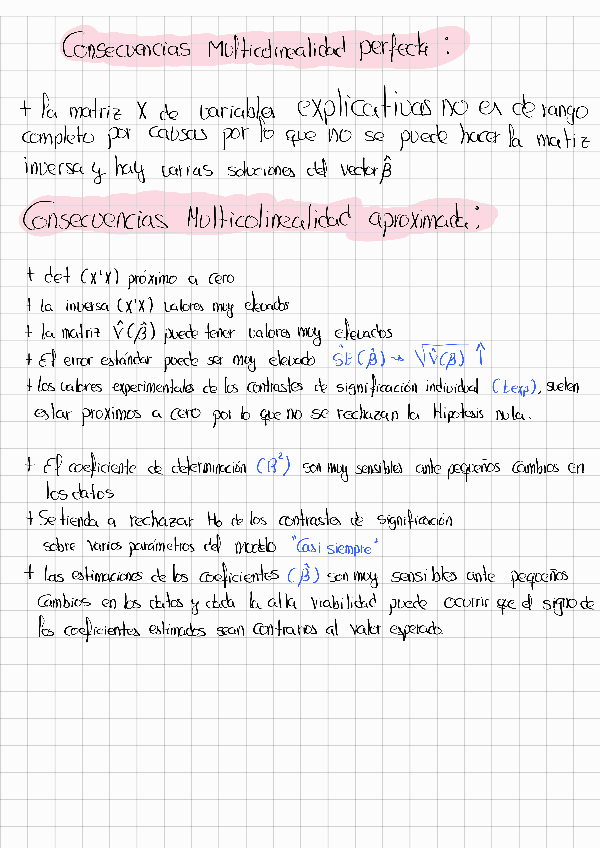 Consecuencias Multicolinealidad perfecta :
+ la matriz X de variables explicativas no es de rango
completo por causas por lo que no se puede hacer la matriz
inversa y hay varias soluciones del vector β̂
Consecuencias Multicolinealidad aproximada:
+ det (X'X) próximo a cero
+ la inversa (X'X) valores muy elevados
+ la matriz V̂(β̂) puede tener valores muy elevados
+ El error estándar puede ser muy elevado ŜE(β̂) → √V̂(β̂) ↑
+ los valores experimentales de los contrastes de significación individual (texp), suelen
estar proximos a cero por lo que no se rechazan la Hipotesis nula.
+ El coeficiente de determinación (R²) son muy sensibles ante pequeños cambios en
los datos
+ Se tienda a rechazar H₀ de los contrastes de significación
sobre varios parámetros del modelo "Casi siempre"
+ las estimaciones de los coeficientes (β̂) son muy sensibles ante pequeños
cambios en los datos y dada la alta viabilidad puede ocurrir que el signo de
los coeficientes estimados sean contrarios al valor esperado